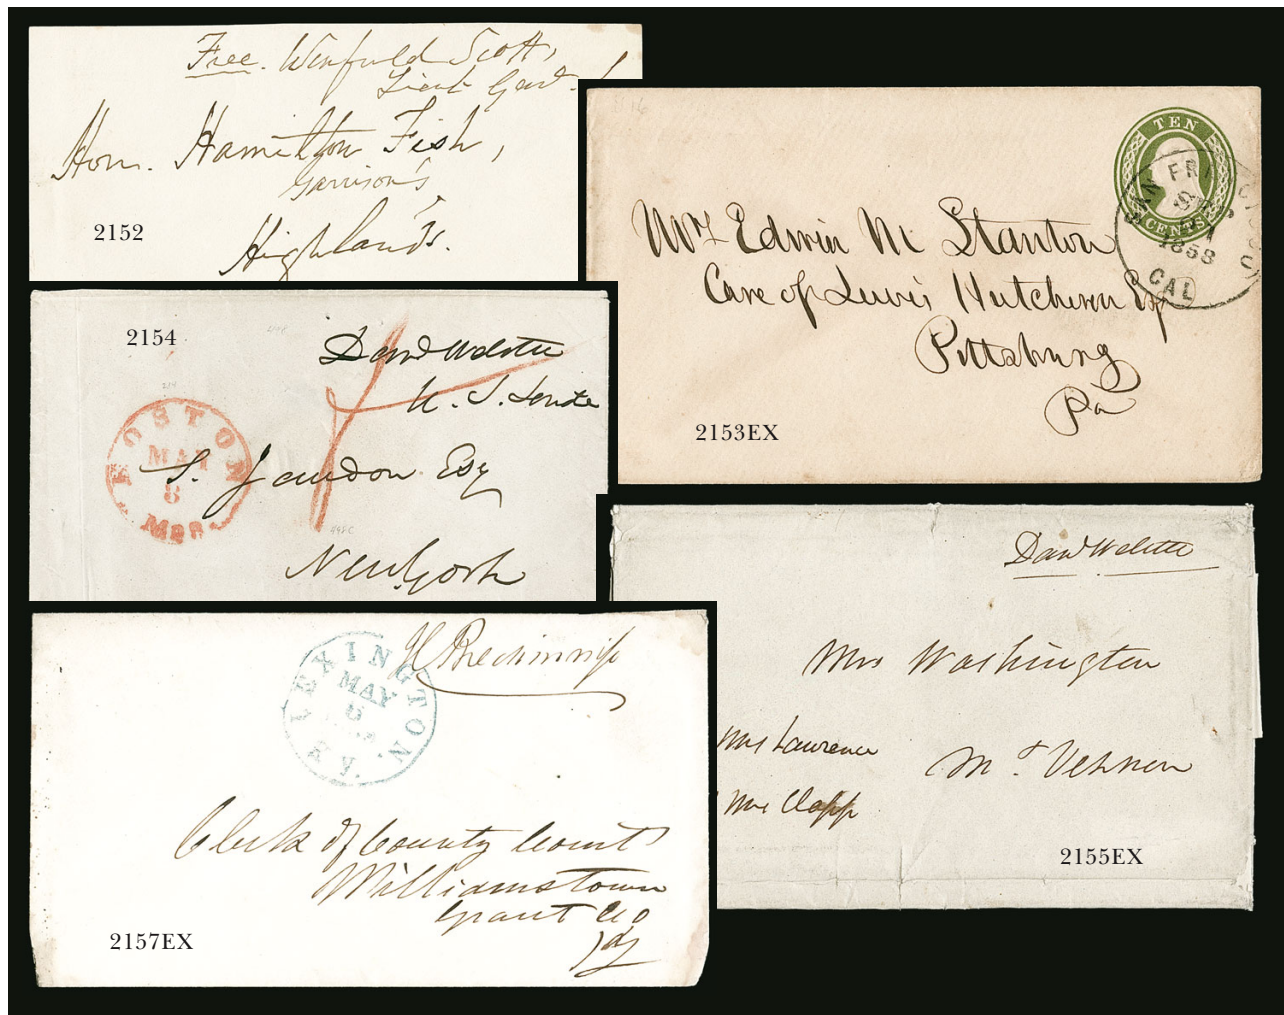 Free. Winfield Scott,
Lieut Genl.
Hon. Hamilton Fish,
Garrison's
Highlands.
2152
TEN
CENTS
SAN FRANCISCO
1858
CAL
Mrs Edwin M Stanton
Care of Lewis Hutcheson Esq
Pittsburg
Pa
2153EX
2154
Danl Webster
U. S. Senate
BOSTON
MAR
8
Mas.
S. Jaudon Esq
New York
Danl Webster
Mrs Washington
Mrs Lawrence
Mt. Vernon
Mrs Clapp
2155EX
LEXINGTON
MAY
Ky.
J C Breckinridge
Clerk of County Court
Williamstown
Grant Co
Ky
2157EX